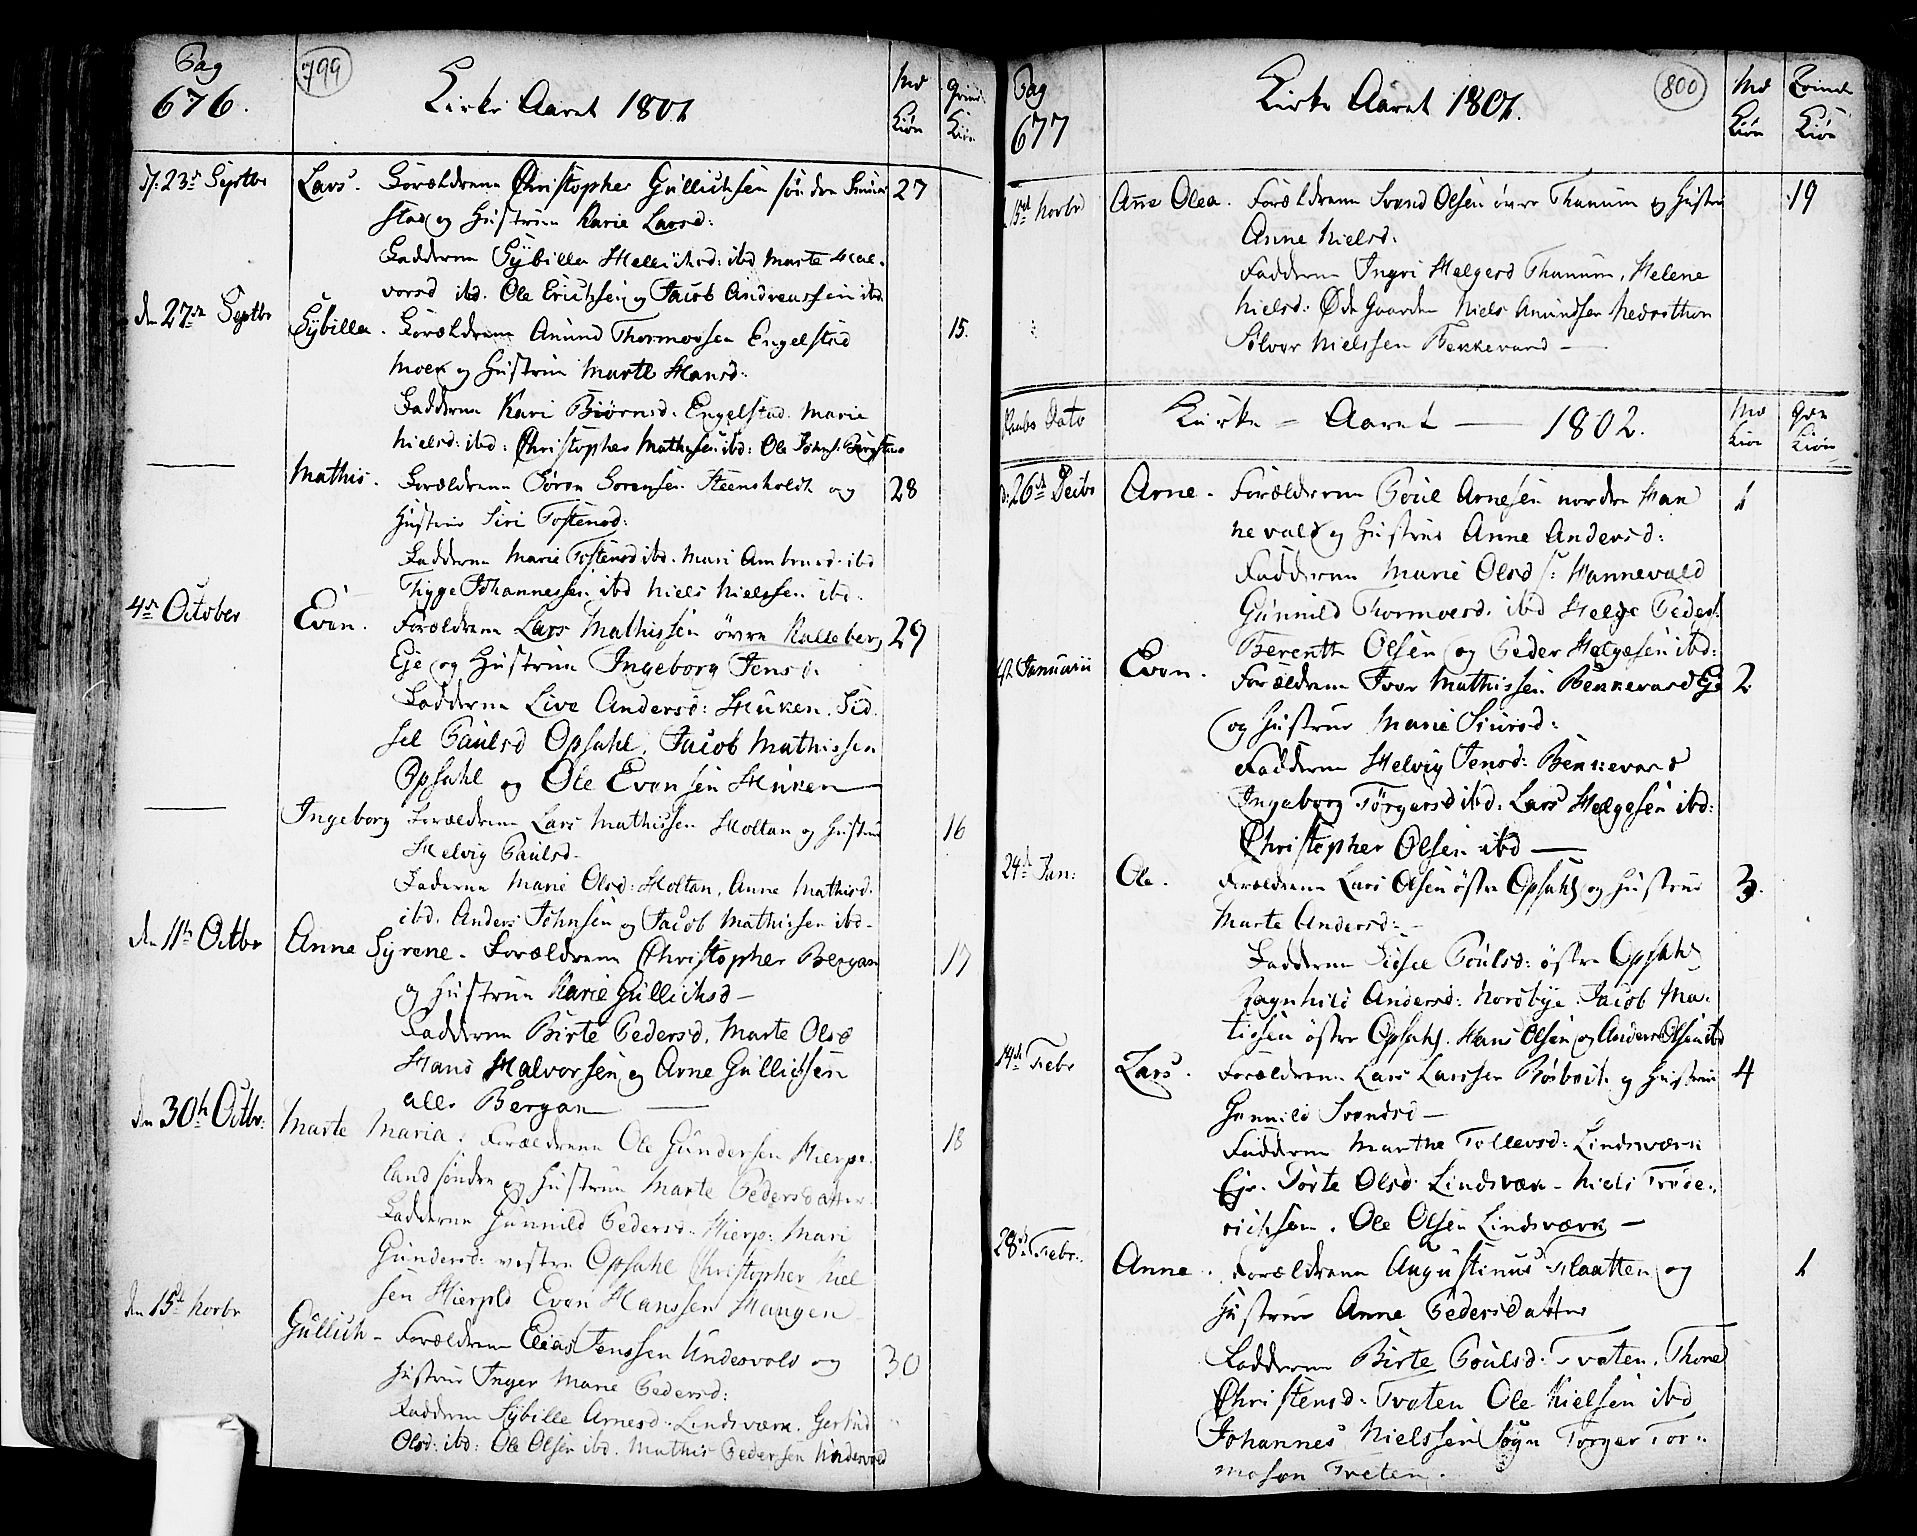 Pag 799
676. Kirke Aaret 1801 Md Kiøn Qvind Kiøn
d: 23de Septbr Lars. Forældrene Christopher Gullichsen søndre 27
stad og Hustrue Karie Larsd:
Fadderne Sybilla ibd Marte Hal-
vorsd ibd. Ole Erichsen og Jacob Andreassen ibd
den 27de Septbr Sybilla. Forældrene Amund Thormossen Engelstad 15.
Moen og Hustrue Marte Hansd:
Fadderne Kari Biørnsd: Engelstad. Marie
Nielsd: ibd: Christopher Mathissen ibd: Ole Johns:
Mathis. Forældrene Søren Sorensen Steensholdt og 28
Hustrue Siri Tostensd:
Fadderne Marie Tostensd ibd. Mari Ambrosd. ibd
Tygge Johannessen ibd Niels Nielssen ibd.
4de October Even. Forældrene Lars Mathissen øvre Kalleberg 29
Eje og Hustrue Ingeborg Jensd.
Fadderne Live Andersd: Huken. Sid-
sel Paulsd Opsahl. Jacob Mathissen
Opsahl og Ole Evensen Huken
Ingeborg Forældrene Lars Mathissen Holtan og Hustrue 16
Helvig Paulsd-
Faderne Marie Olsd: Holtan, Anne Mathisd.
ibd. Anders Johnsen og Jacob Mathissen ibd-
den 11te Octbr Anne Syrene. Forældrene Christopher Bergan 17
og Hustrue Karie Gullichsd-
Fadderne Birte Pedersd. Marte Olsd
Hans Halvorsen og Arne Gullichsen
alle Bergan
den 30te Octbr: Marte Maria. Forældrene Ole Gundersen Hierpe- 18
land søndre og Hustrue Marte Pedersdatter.
Fadderne Gunnild Pedersd. Hierp: Mari
Gundersd: vestre Opsahl Christopher Niel
sen Hierpld Even Hanssen Haugen
den 15de Novbr Gullich- Forældrene Elias Jenssen Undesvold og 30
Hustrue Inger Marie Pedersd:
Fadderne Sybille Arnesd. Lindsværn. Gertrud
Olsd: ibd: Ole Olsen ibd. Mathis Pedersen Undesvold
Pag 800
677 Kirke Aaret 1801. Md Kiøn Qvinde Kiøn
15de Novbr Anne Olea. Forældrene Svend Olsen øvre Thanum og Hustrue 19
Anne Nielsd:
Fadderne Ingri Helgesd Thanum, Helene
Nielsd: Øde Gaarden Niels Amundsen
Sølver Nielssen Bekkevard
Daabs Dato Kirke - Aaret 1802. Md Kiøn Qvin Kiøn
d: 26de Decbr Arne. Forælderne Poul Arnesen nordre Han 1
nevald og Hustrue Anne Andersd:
Fadderne Marie Olsd s: Hannevald
Gunnild Thormoesd. ibd Helge Peders:
Berenth Olsen og Peder Helgesen ibd:
Januarii Even. Forældrene Iver Mathissen Bekkevard Eje 2
og Hustrue Marie Siursd:
Fadderne Helvig Jensd: Bekkevard
Ingeborg Törgersd ibd. Lars Helgesen ibd:
Christopher Olsen ibd
24de Jan: Ole. Forældrene Lars Olsen østre Opsahl og Hustrue 3.
Marte Andersd:
Fadderne Sidsel Poulsd: østre Opsahl
Ragnhild Andersd: Nordbye. Jacob Ma-
tisen østre Opsahl. Hans Olsen og Anders Olsen ibd
14de Febr Lars. Forældrene Lars Larssen og Hustrue 4
Gunnild Svendsd-
Fadderne Marthe Tollevsd: Lindsværn
Eje. Torte Olsd. Lindsværn- Niels Fride-
richsen. Ole Olsen Lindsværn-
28de Febr: Anne. Forældrene Augustinus Flaatten og 1
Hustrue Anne Pedersdatter
Fadderne Birte Poulsd. Tveten. Thone
Christensd. Tveten Ole Nielsen ibd
Johannes Nielssen Torger Tor-
mosen Tveten.